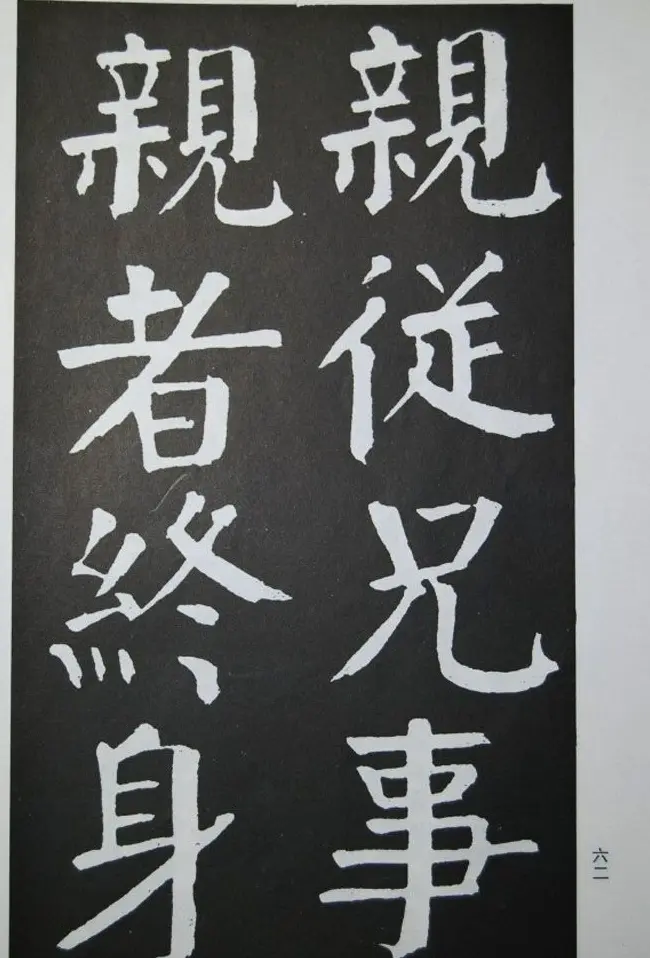 親從兄事
親者終身
六二